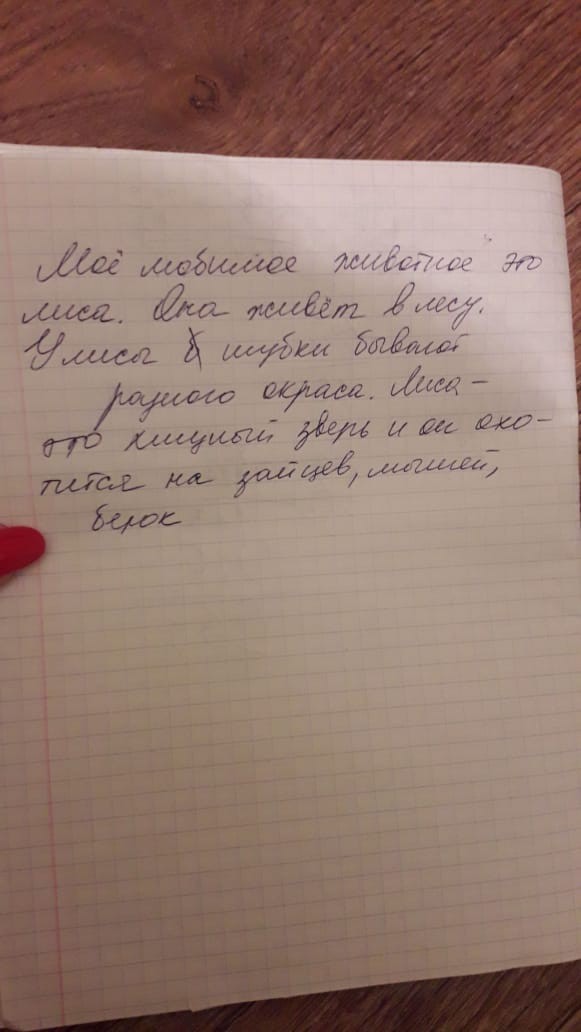 Моё любимое животное это
лиса. Она живёт в лесу.
У лисы шубки бывают
разного окраса. Лиса -
это хищный зверь и он охо-
тится на зайцев, мышей,
белок